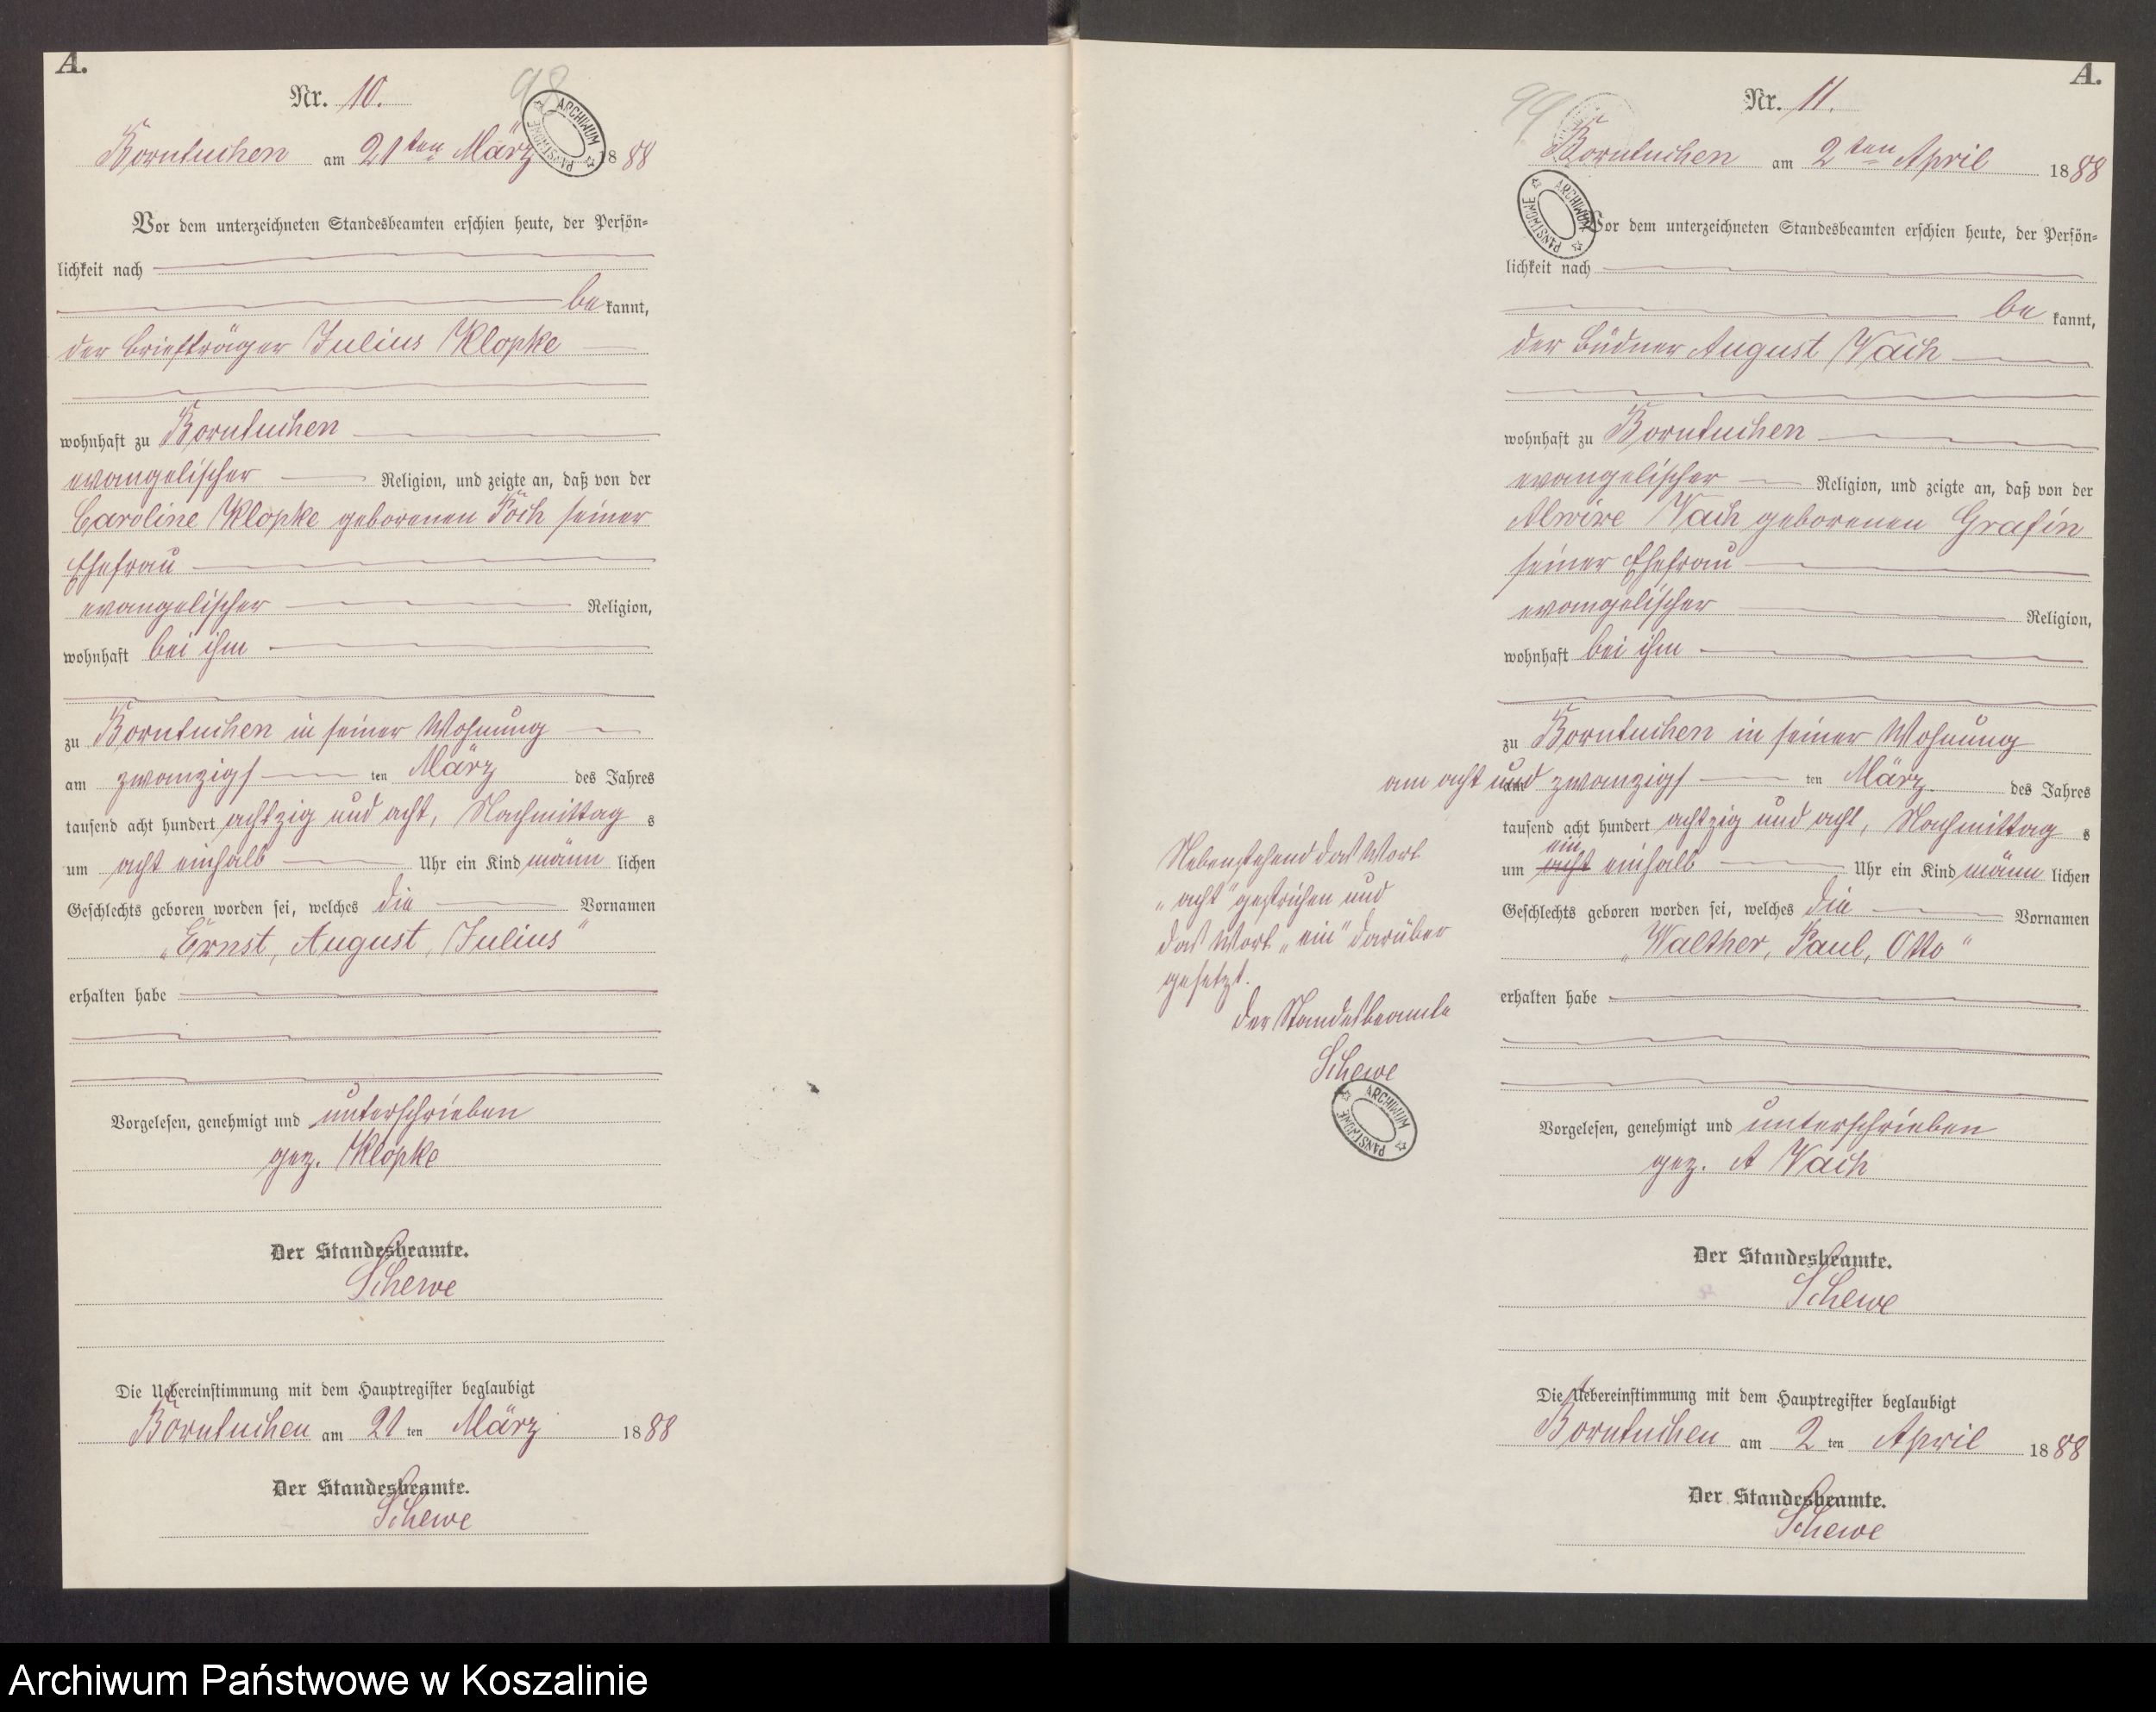 A.
98
Nr. 10.
ARCHIWUM PAŃSTWOWE
Borntuchen am 21ten März 1888
Vor dem unterzeichneten Standesbeamten erschien heute, der Persön-
lichkeit nach
be kannt,
der Briefträger Julius Klopke
wohnhaft zu Borntuchen
evangelischer Religion, und zeigte an, daß von der
Caroline Klopke geborenen Poch seiner
Ehefrau
evangelischer Religion,
wohnhaft bei ihm
zu Borntuchen in seiner Wohnung
am zwanzigs ten März des Jahres
tausend acht hundert achtzig und acht, Nachmittag s
um acht einhalb Uhr ein Kind männ lichen
Geschlechts geboren worden sei, welches die Vornamen
„Ernst, August, Julius“
erhalten habe
Vorgelesen, genehmigt und unterschrieben
gez. Klopke
Der Standesbeamte.
Schewe
Die Uebereinstimmung mit dem Hauptregister beglaubigt
Borntuchen am 21 ten März 1888
Der Standesbeamte.
Schewe
A.
99
Nr. 11.
Borntuchen am 2ten April 1888
ARCHIWUM PAŃSTWOWE
Vor dem unterzeichneten Standesbeamten erschien heute, der Persön-
lichkeit nach
be kannt,
der Büdner August Vach
wohnhaft zu Borntuchen
evangelischer Religion, und zeigte an, daß von der
Alwine Vach geborenen Grafin
seiner Ehefrau
evangelischer Religion,
wohnhaft bei ihm
zu Borntuchen in seiner Wohnung
am acht und zwanzigs ten März des Jahres
tausend acht hundert achtzig und acht, Nachmittag s
ein
um acht einhalb Uhr ein Kind männ lichen
Geschlechts geboren worden sei, welches die Vornamen
„Walther, Paul, Otto“
erhalten habe
Nebenstehend das Wort
„acht“ gestrichen und
das Wort „ein“ darüber
gesetzt.
Der Standesbeamte
Schewe
ARCHIWUM PAŃSTWOWE
Vorgelesen, genehmigt und unterschrieben
gez. A Vach
Der Standesbeamte.
Schewe
Die Uebereinstimmung mit dem Hauptregister beglaubigt
Borntuchen am 2 ten April 1888
Der Standesbeamte.
Schewe
Archiwum Państwowe w Koszalinie